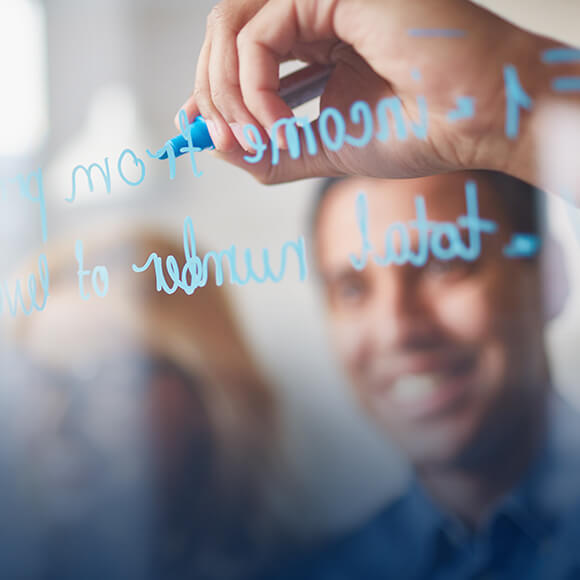 1 - income from
- total number of